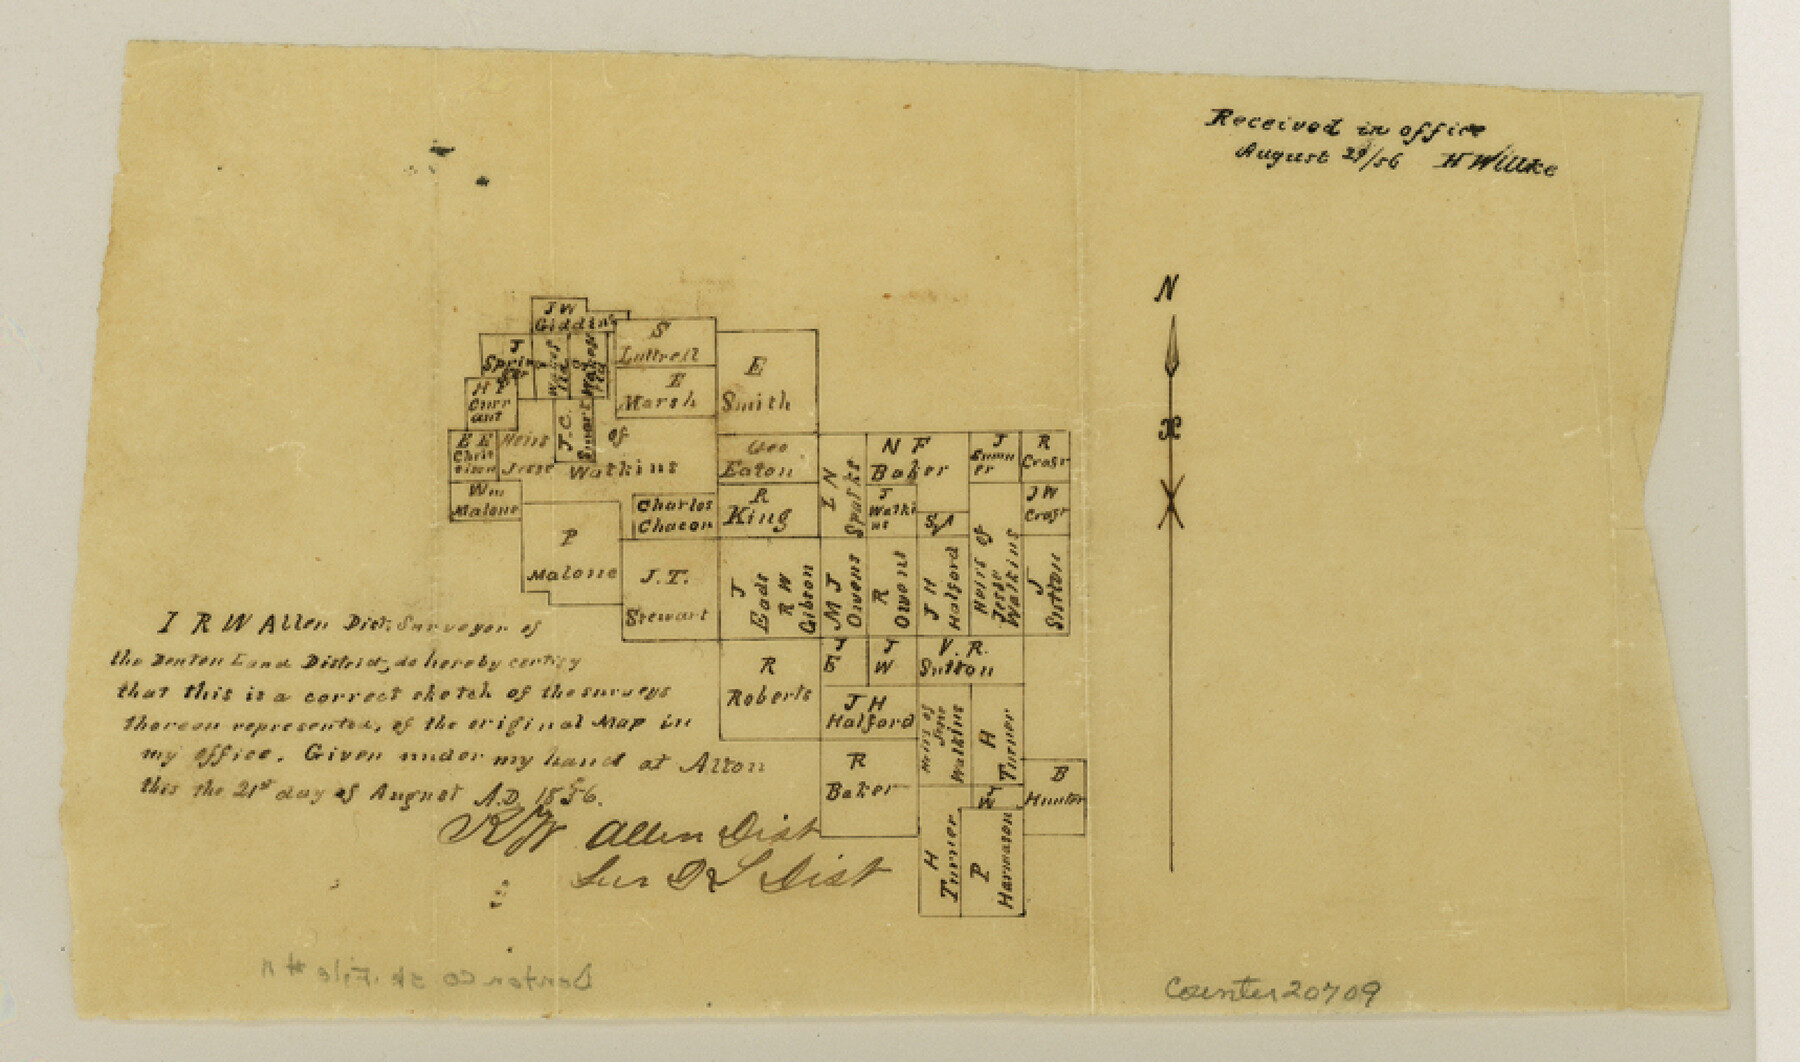 Received in office
August 29/56 H Willke
N
J W
Giddins
S
Luttrell
E
Smith
J
H P
Curr
ant
E
Marsh
J.C.
Smart
E E
Chris
tison
Heirs of
Jesse Watkins
Geo
Eaton
N F
Baker
J
Sumn
er
R
Crasr
Wm
Malone
Charles
Chacon
R
King
I N
Sparks
J
Watki
ns
J W
Crasr
P
Malone
J. T.
Stewart
J
Eads
R W
Gibson
M J
Owens
R
Owens
J H
Halford
Heirs of
Jesse
Watkins
J
Sutton
R
Roberts
J
E
J
W
V. R.
Sutton
J H
Halford
Heirs of
Jesse
Watkins
H
Turner
R
Baker
J
W
B
Hunter
H
Turner
P
Harmason
I R W Allen Dist. Surveyor of
the Denton Land District, do hereby certify
that this is a correct sketch of the surveys
thereon represented, of the original Map in
my office. Given under my hand at Alton
this the 21st day of August A.D. 1856.
R W Allen Dist
Sur D L Dist
Denton Co Sk. File #
Counter 20709